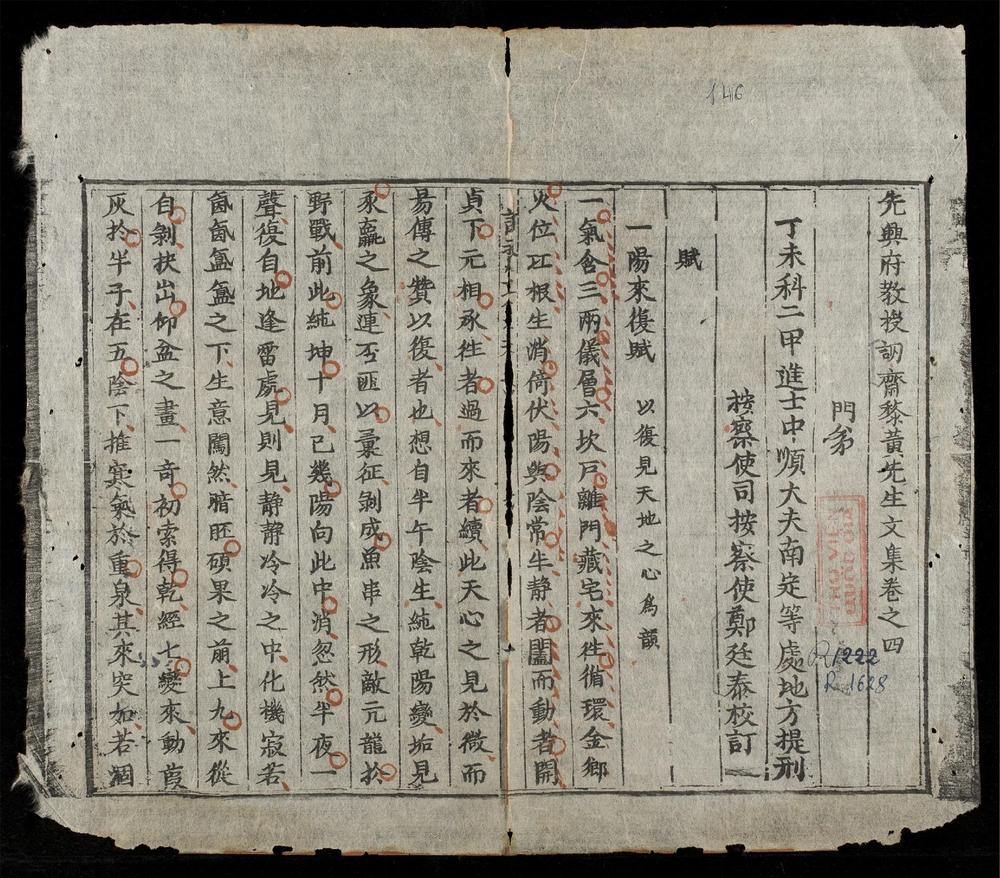 先興府教授調齋黎黃先生文集卷之四
門弟
丁未科二甲進士中順大夫南定等處地方提刑
按察使司按察使鄭廷泰校訂
賦
一陽來復賦 以復見天地之心為韻
一氣含三兩儀層六坎戸離門藏宅來徃循環金鄉
火位互根生消倚伏陽與陰常半静者闔而動者開
貞下元相承徃者過而來者續此天心之見於微而
易傳之贊以復者也想自半午陰生純乾陽變垢見
豕羸之象連否匪以彙征剝成魚串之形敵元龍扵
野戰前此純坤十月已幾陽向此中消忽然半夜一
聲復自地逢雷處見則見静静冷冷之中化機寂若
氤氤氳氳之下生意闖然暗胚碩果之前上九來從
自剝抉出仰盆之畫一竒初索得乾經七變來動葭
灰扵半子在五陰下推寒氣於重泉其來突如若涸
146
R.1222
R.1628